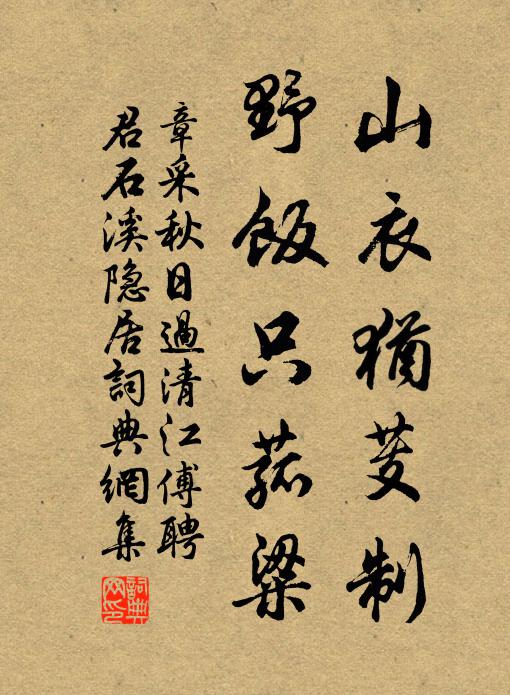 山衣犹芰制
野飯只菰粱
章采秋日過清江傅聘
君石溪隐居詞典網集
詞典网印